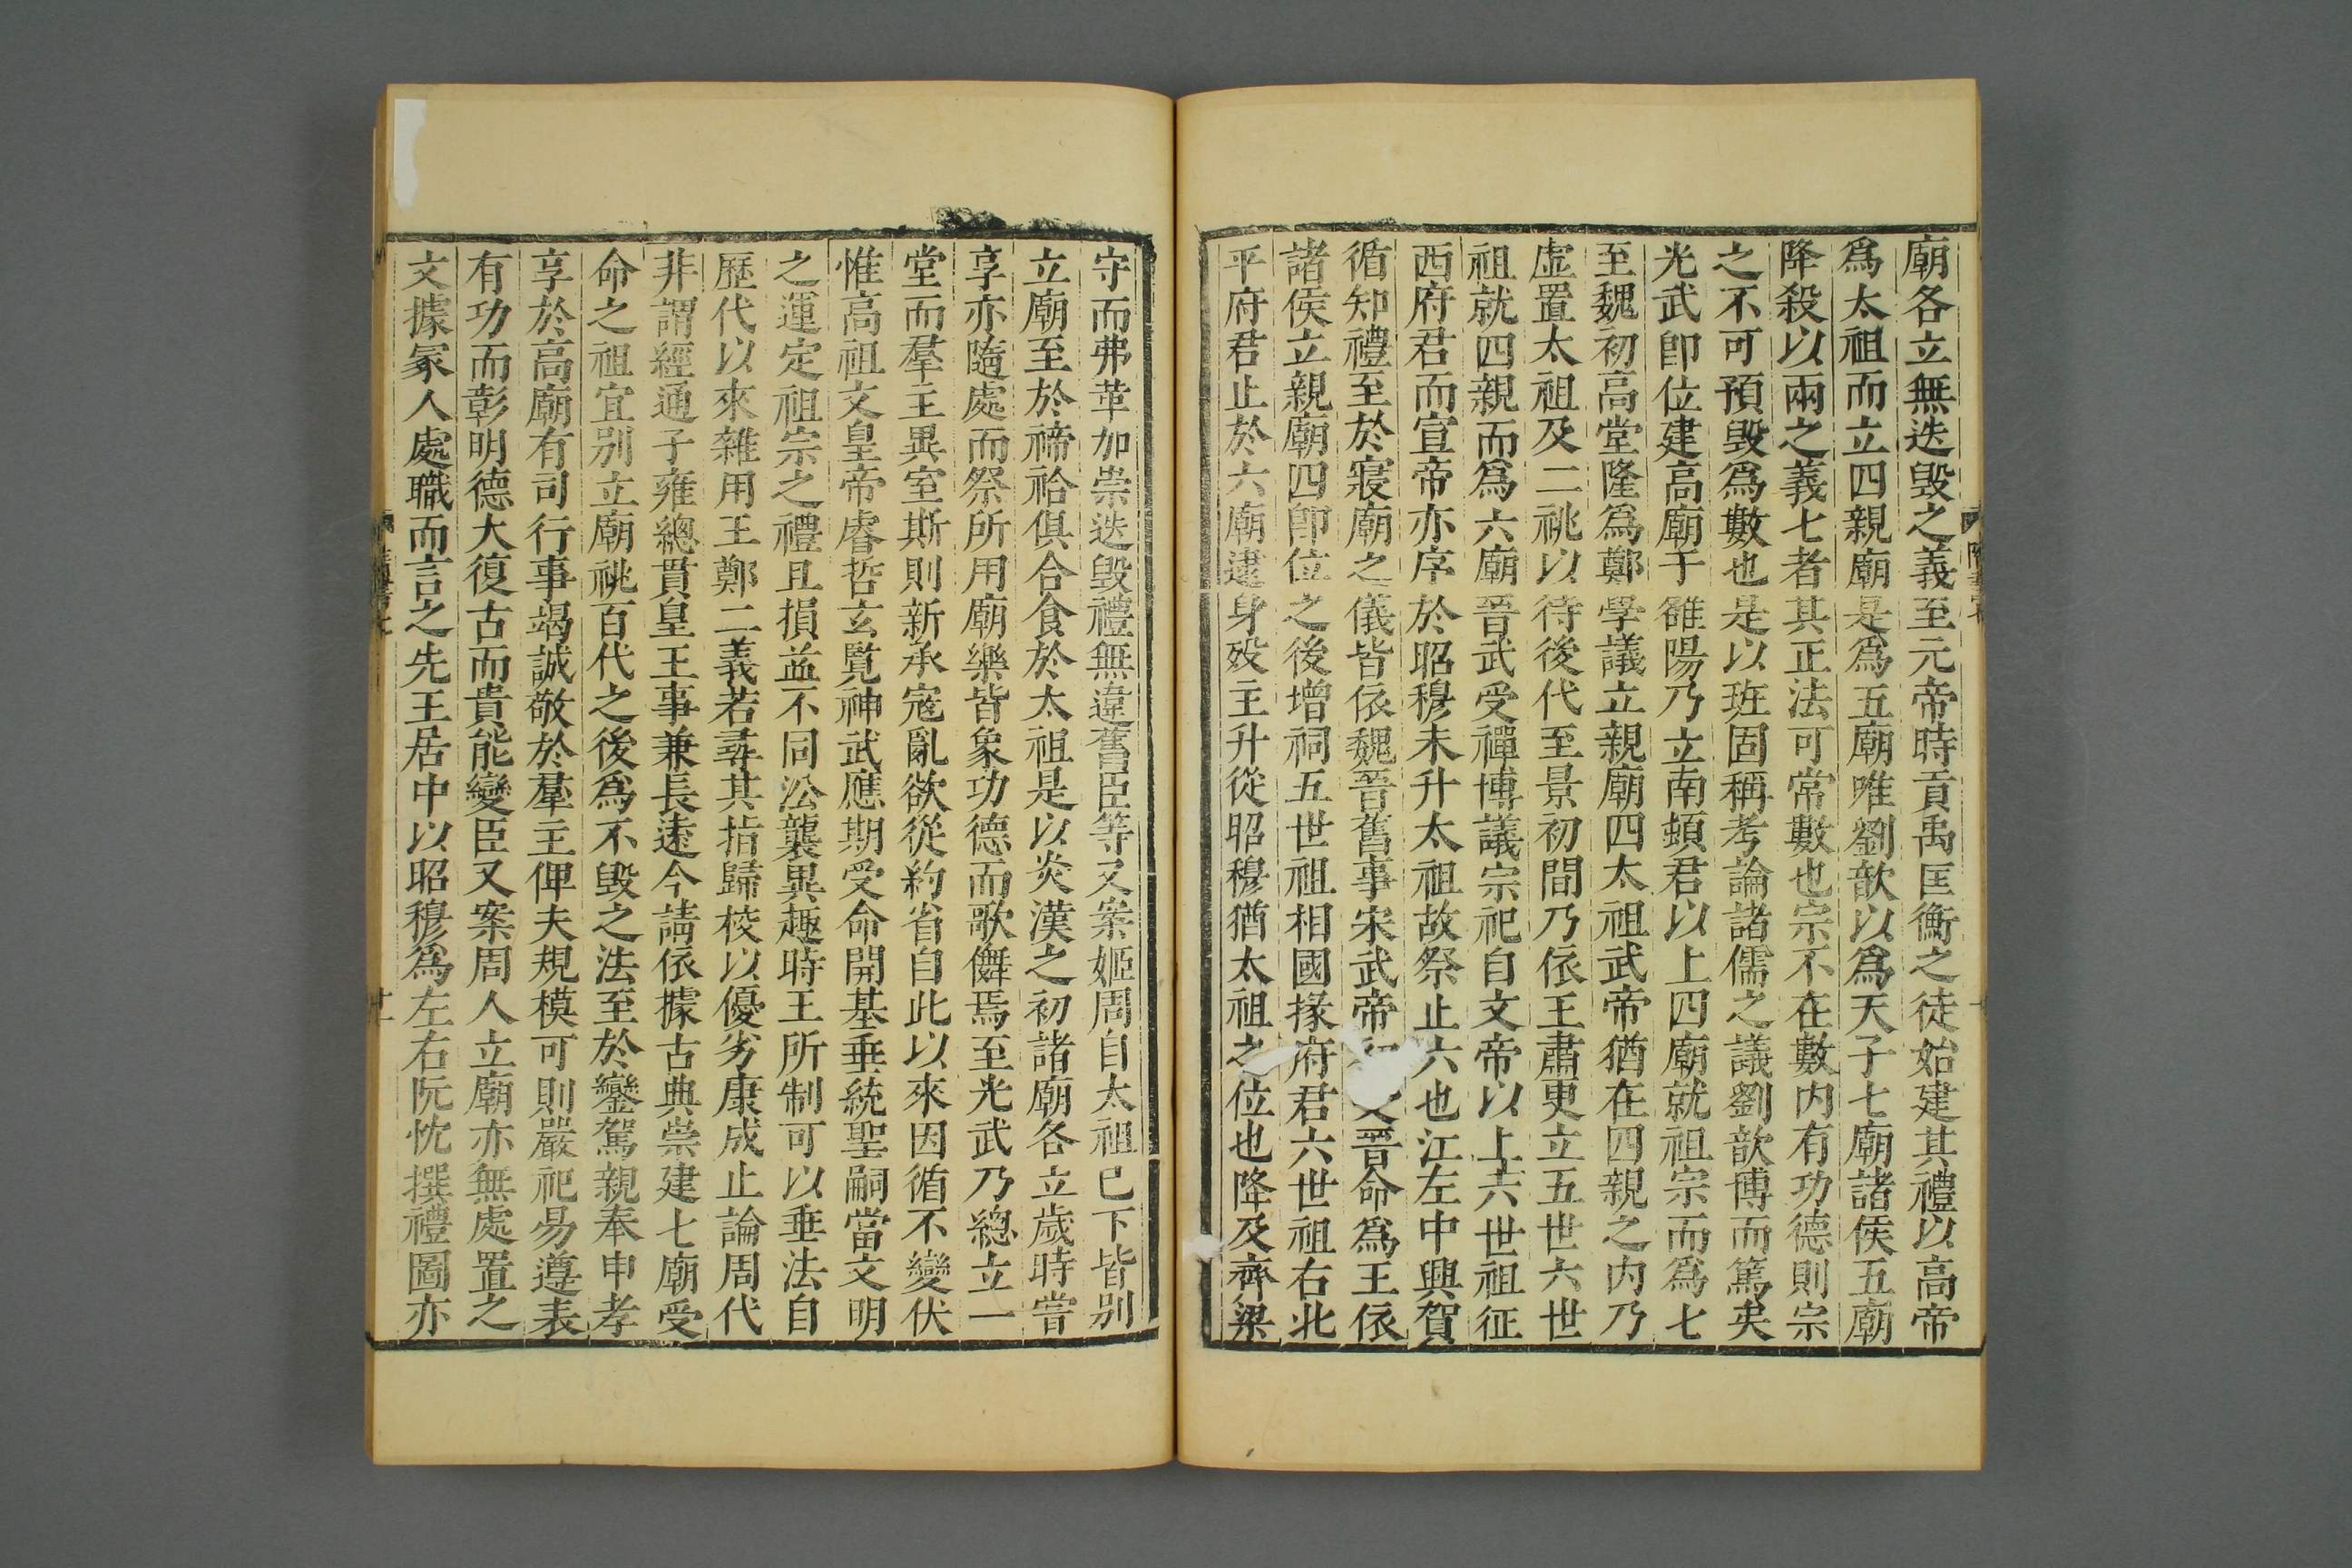 廟各立無迭毁之義至元帝時貢禹匡衡之徒始建其禮以高帝
爲太祖而立四親廟是爲五廟唯劉歆以爲天子七廟諸侯五廟
降殺以兩之義七者其正法可常數也宗不在數内有功德則宗
之不可預毁爲數也是以班固稱考論諸儒之議劉歆博而篤矣
光武卽位建高廟于雒陽乃立南頓君以上四廟就祖宗而爲七
至魏初高堂隆爲鄭學議立親廟四太祖武帝猶在四親之内乃
虚置太祖及二祧以待後代至景初間乃依王肅更立五世六世
祖就四親而爲六廟晉武受禪博議宗祀自文帝以上六世祖征
西府君而宣帝亦序於昭穆未升太祖故祭止六也江左中興賀
循知禮至於寢廟之儀皆依魏晉舊事宋武帝晉命爲王依
諸侯立親廟四卽位之後增祠五世祖相國掾府君六世祖右北
平府君止於六廟逮身殁主升從昭穆猶太祖之位也降及齊梁
守而弗革加崇迭毁禮無違舊臣等又案姬周自太祖已下皆别
立廟至於禘祫俱合食於太祖是以炎漢之初諸廟各立歲時嘗
享亦隨處而祭所用廟樂皆象功德而歌儛焉至光武乃總立一
堂而羣主異室斯則新承寇亂欲從約省自此以來因循不變伏
惟高祖文皇帝睿哲玄覽神武應期受命開基垂統聖嗣當文明
之運定祖宗之禮且損益不同沿襲異趣時王所制可以垂法自
歷代以來雜用王鄭二義若尋其指歸校以優劣康成止論周代
非謂經通子雍總貫皇王事兼長遠今請依據古典崇建七廟受
命之祖宜别立廟祧百代之後爲不毁之法至於鑾駕親奉申孝
享於高廟有司行事竭誠敬於羣主俾夫規模可則嚴祀易遵表
有功而彰明德大復古而貴能變臣又案周人立廟亦無處置之
文據冢人處職而言之先王居中以昭穆爲左右阮忱撰禮圖亦